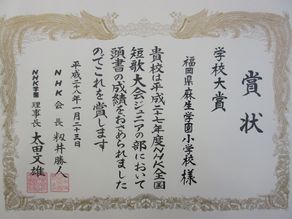 賞状
学校大賞
福岡県麻生学園小学校 様
貴校は平成二十七年度NHK全国
短歌大会ジュニアの部において
頭書の成績をおさめられました
のでこれを賞します
平成二十八年一月二十三日
NHK 会長 籾井勝人
NHK学園 理事長 太田文雄